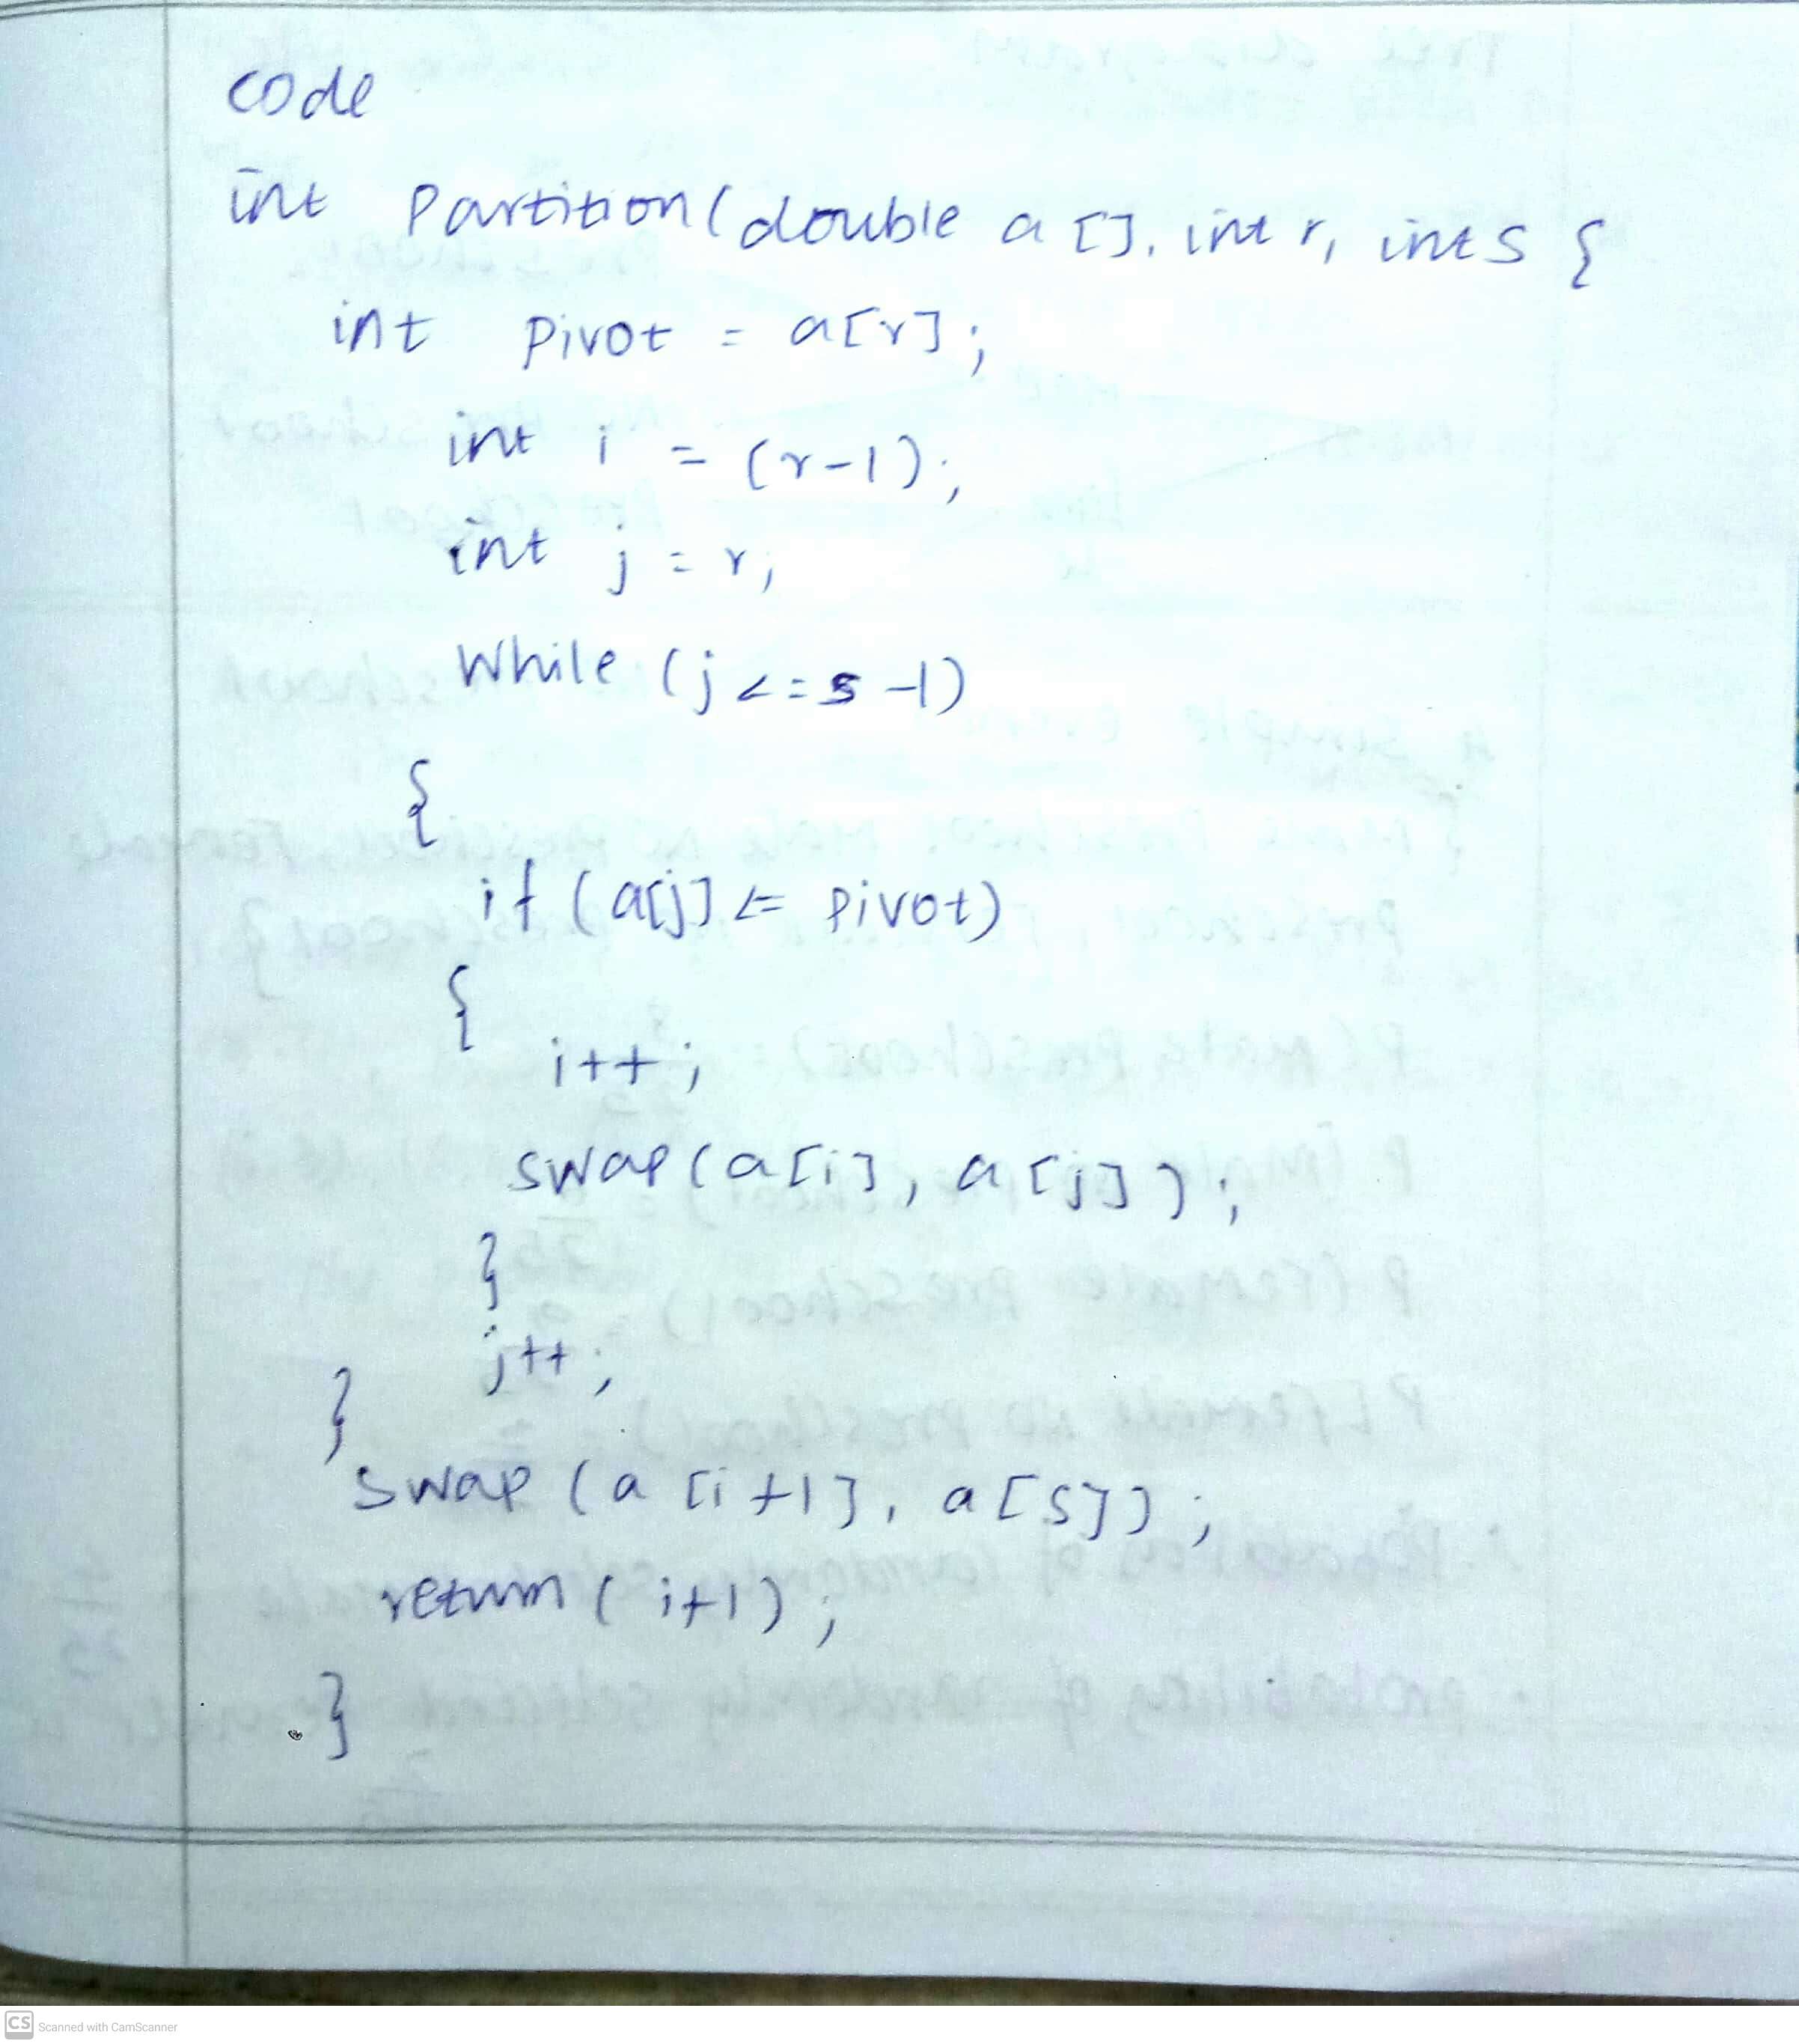 code
int Partition(double a[], int r, int s {
int pivot = a[r];
int i = (r-1);
int j = r;
While (j <= s -1)
{
if (a[j] <= pivot)
{
i++;
swap(a[i], a[j]);
}
j++;
}
swap (a [i+1], a[s]);
return (i+1);
}
CS Scanned with CamScanner